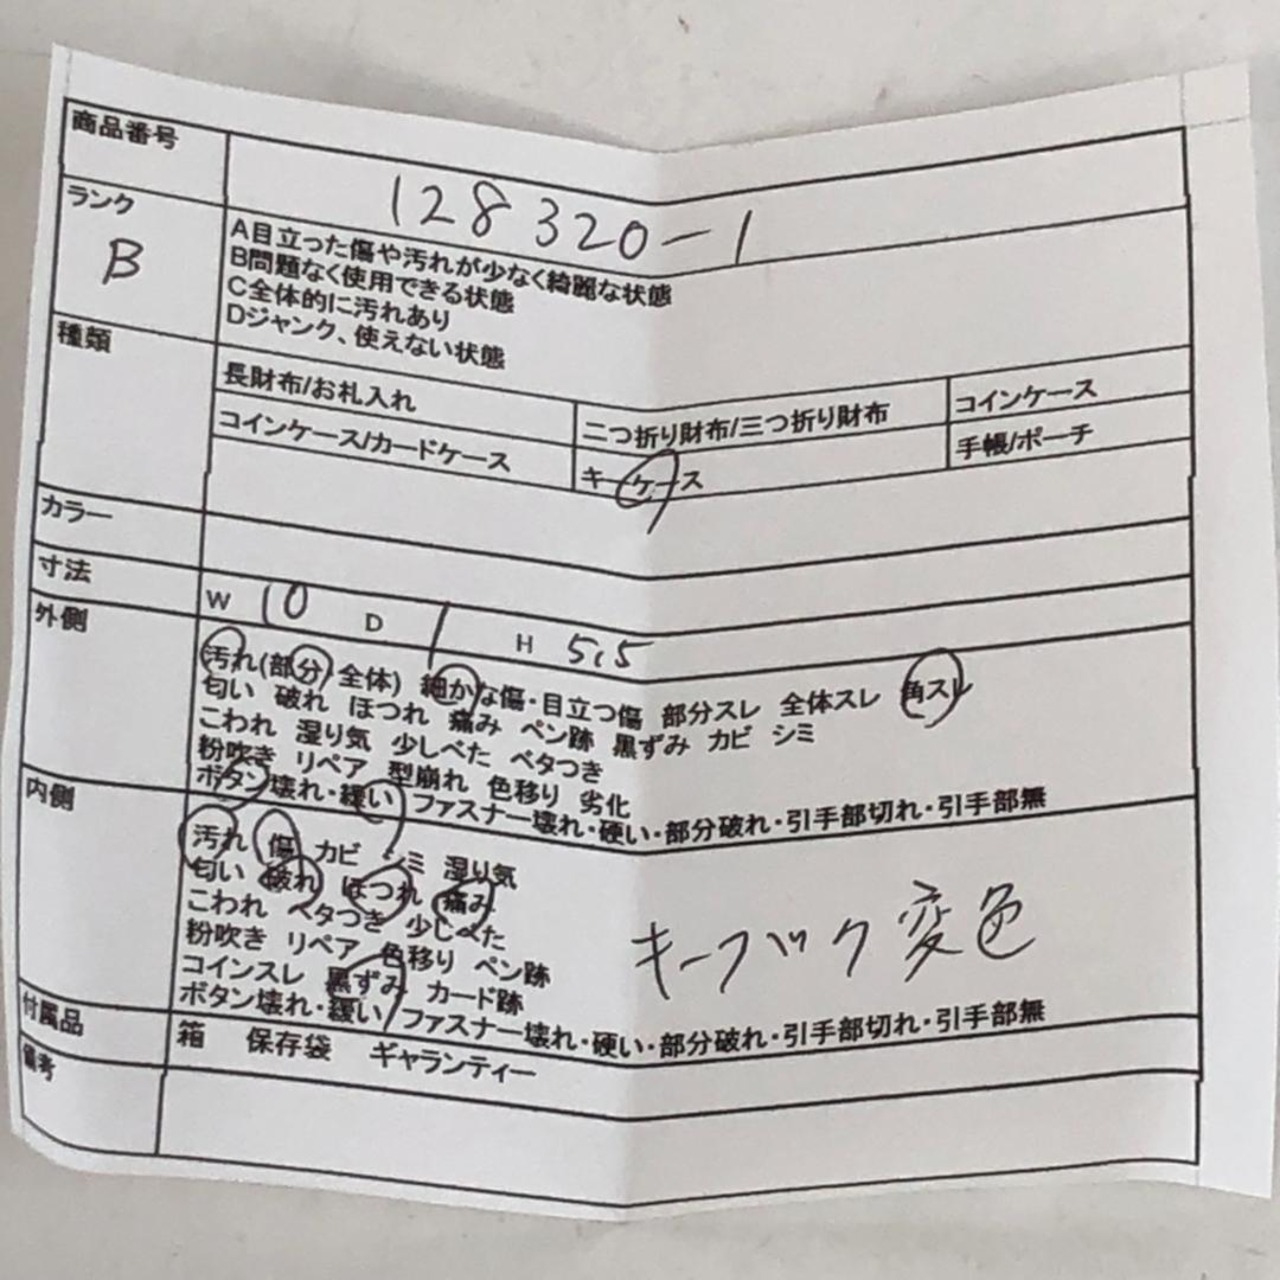 商品番号
128320-1
ランク
B
A目立った傷や汚れが少なく綺麗な状態
B問題なく使用できる状態
C全体的に汚れあり
Dジャンク、使えない状態
種類
長財布/お札入れ
二つ折り財布/三つ折り財布
コインケース
コインケース/カードケース
キーケース
手帳/ポーチ
カラー
寸法
W 10 D 1 H 5.5
外側
汚れ(部分/全体) 細かな傷・目立つ傷 部分スレ 全体スレ 角スレ
匂い 破れ ほつれ 痛み ペン跡 黒ずみ カビ シミ
こわれ 湿り気 少しべた ベタつき
粉吹き リペア 型崩れ 色移り 劣化
ボタン壊れ・緩い/ファスナー壊れ・硬い・部分破れ・引手部切れ・引手部無
内側
汚れ 傷 カビ シミ 湿り気
匂い 破れ ほつれ 痛み
こわれ ベタつき 少しべた
粉吹き リペア 色移り ペン跡
コインスレ 黒ずみ カード跡
ボタン壊れ・緩い/ファスナー壊れ・硬い・部分破れ・引手部切れ・引手部無
キーフック変色
付属品
箱 保存袋 ギャランティー
備考